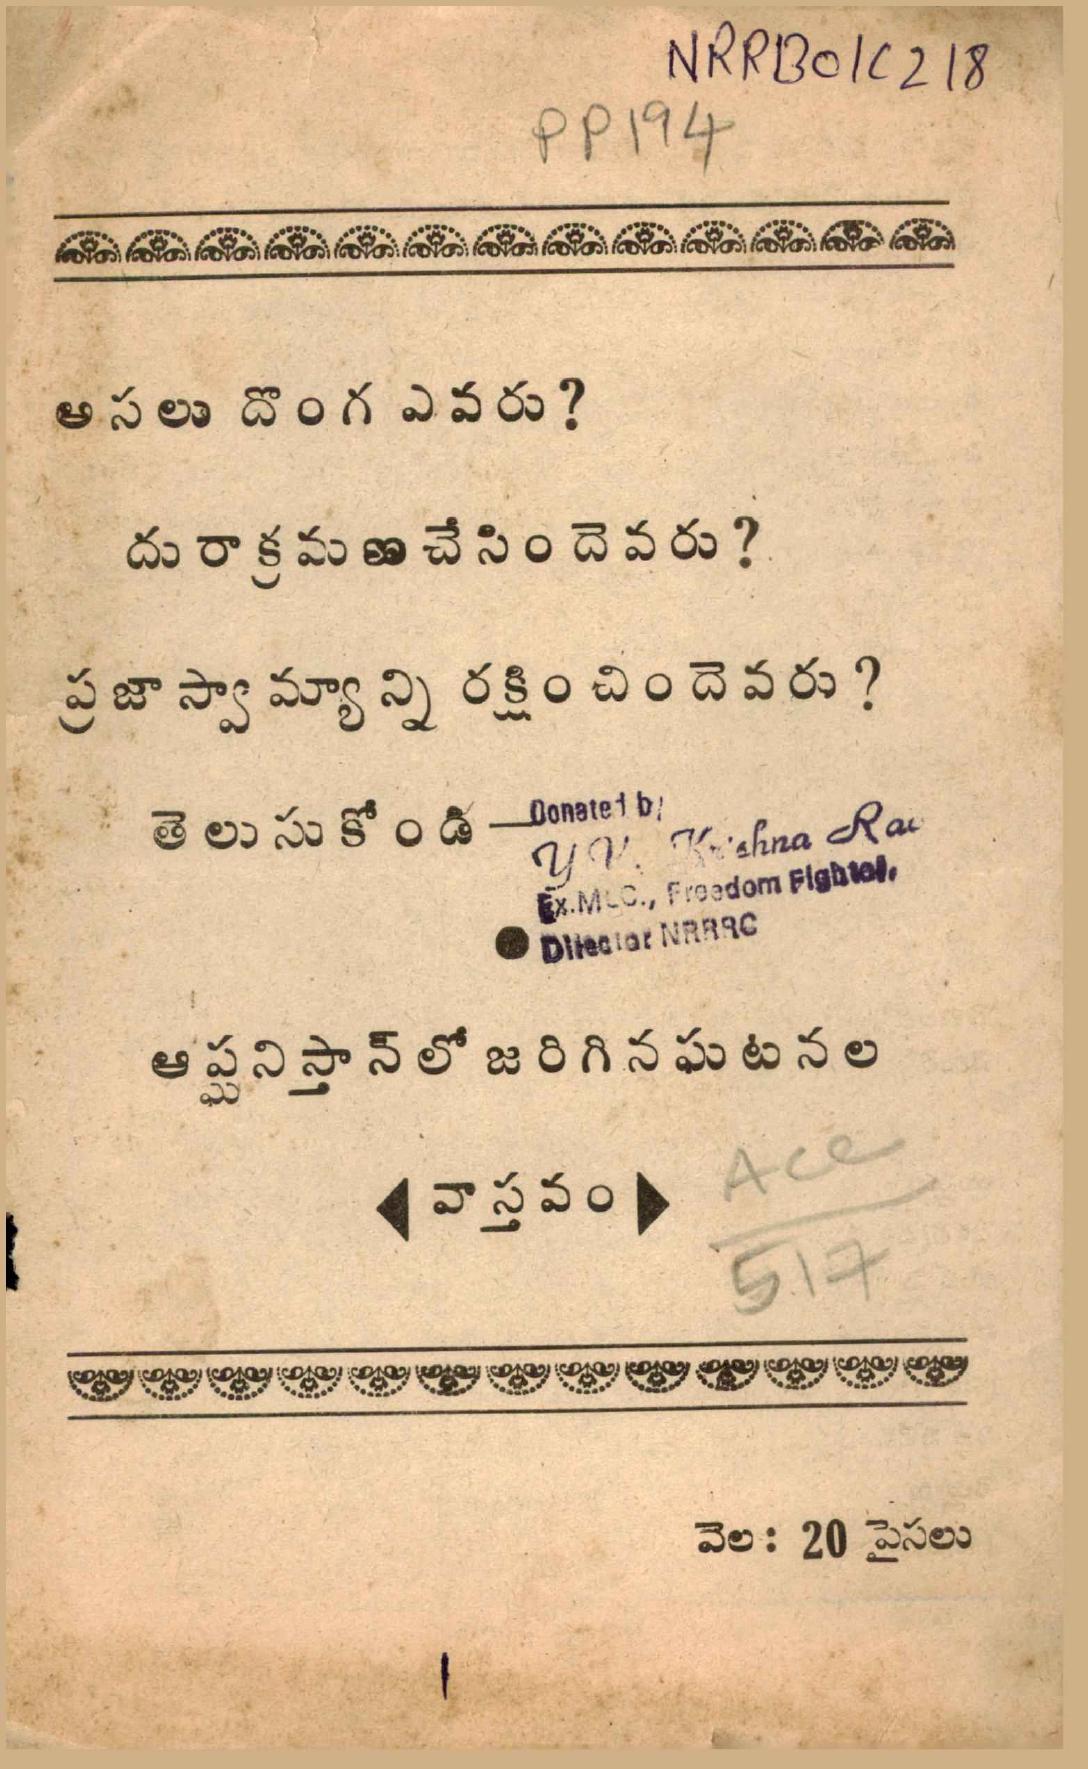 NRRB01C218
PP194
అసలు దొంగ ఎవరు?
దురాక్రమణచేసిందెవరు?
ప్రజాస్వామ్యాన్ని రక్షించిందెవరు?
తెలుసుకోండి—
Donated by
Y V. Krishna Rao
Ex.MLC., Freedom Fighter,
Director NRRRC
ఆప్ఘనిస్తాన్‌లో జరిగిన ఘటనల
వాస్తవం
Acc
517
వెల : 20 పైసలు
1